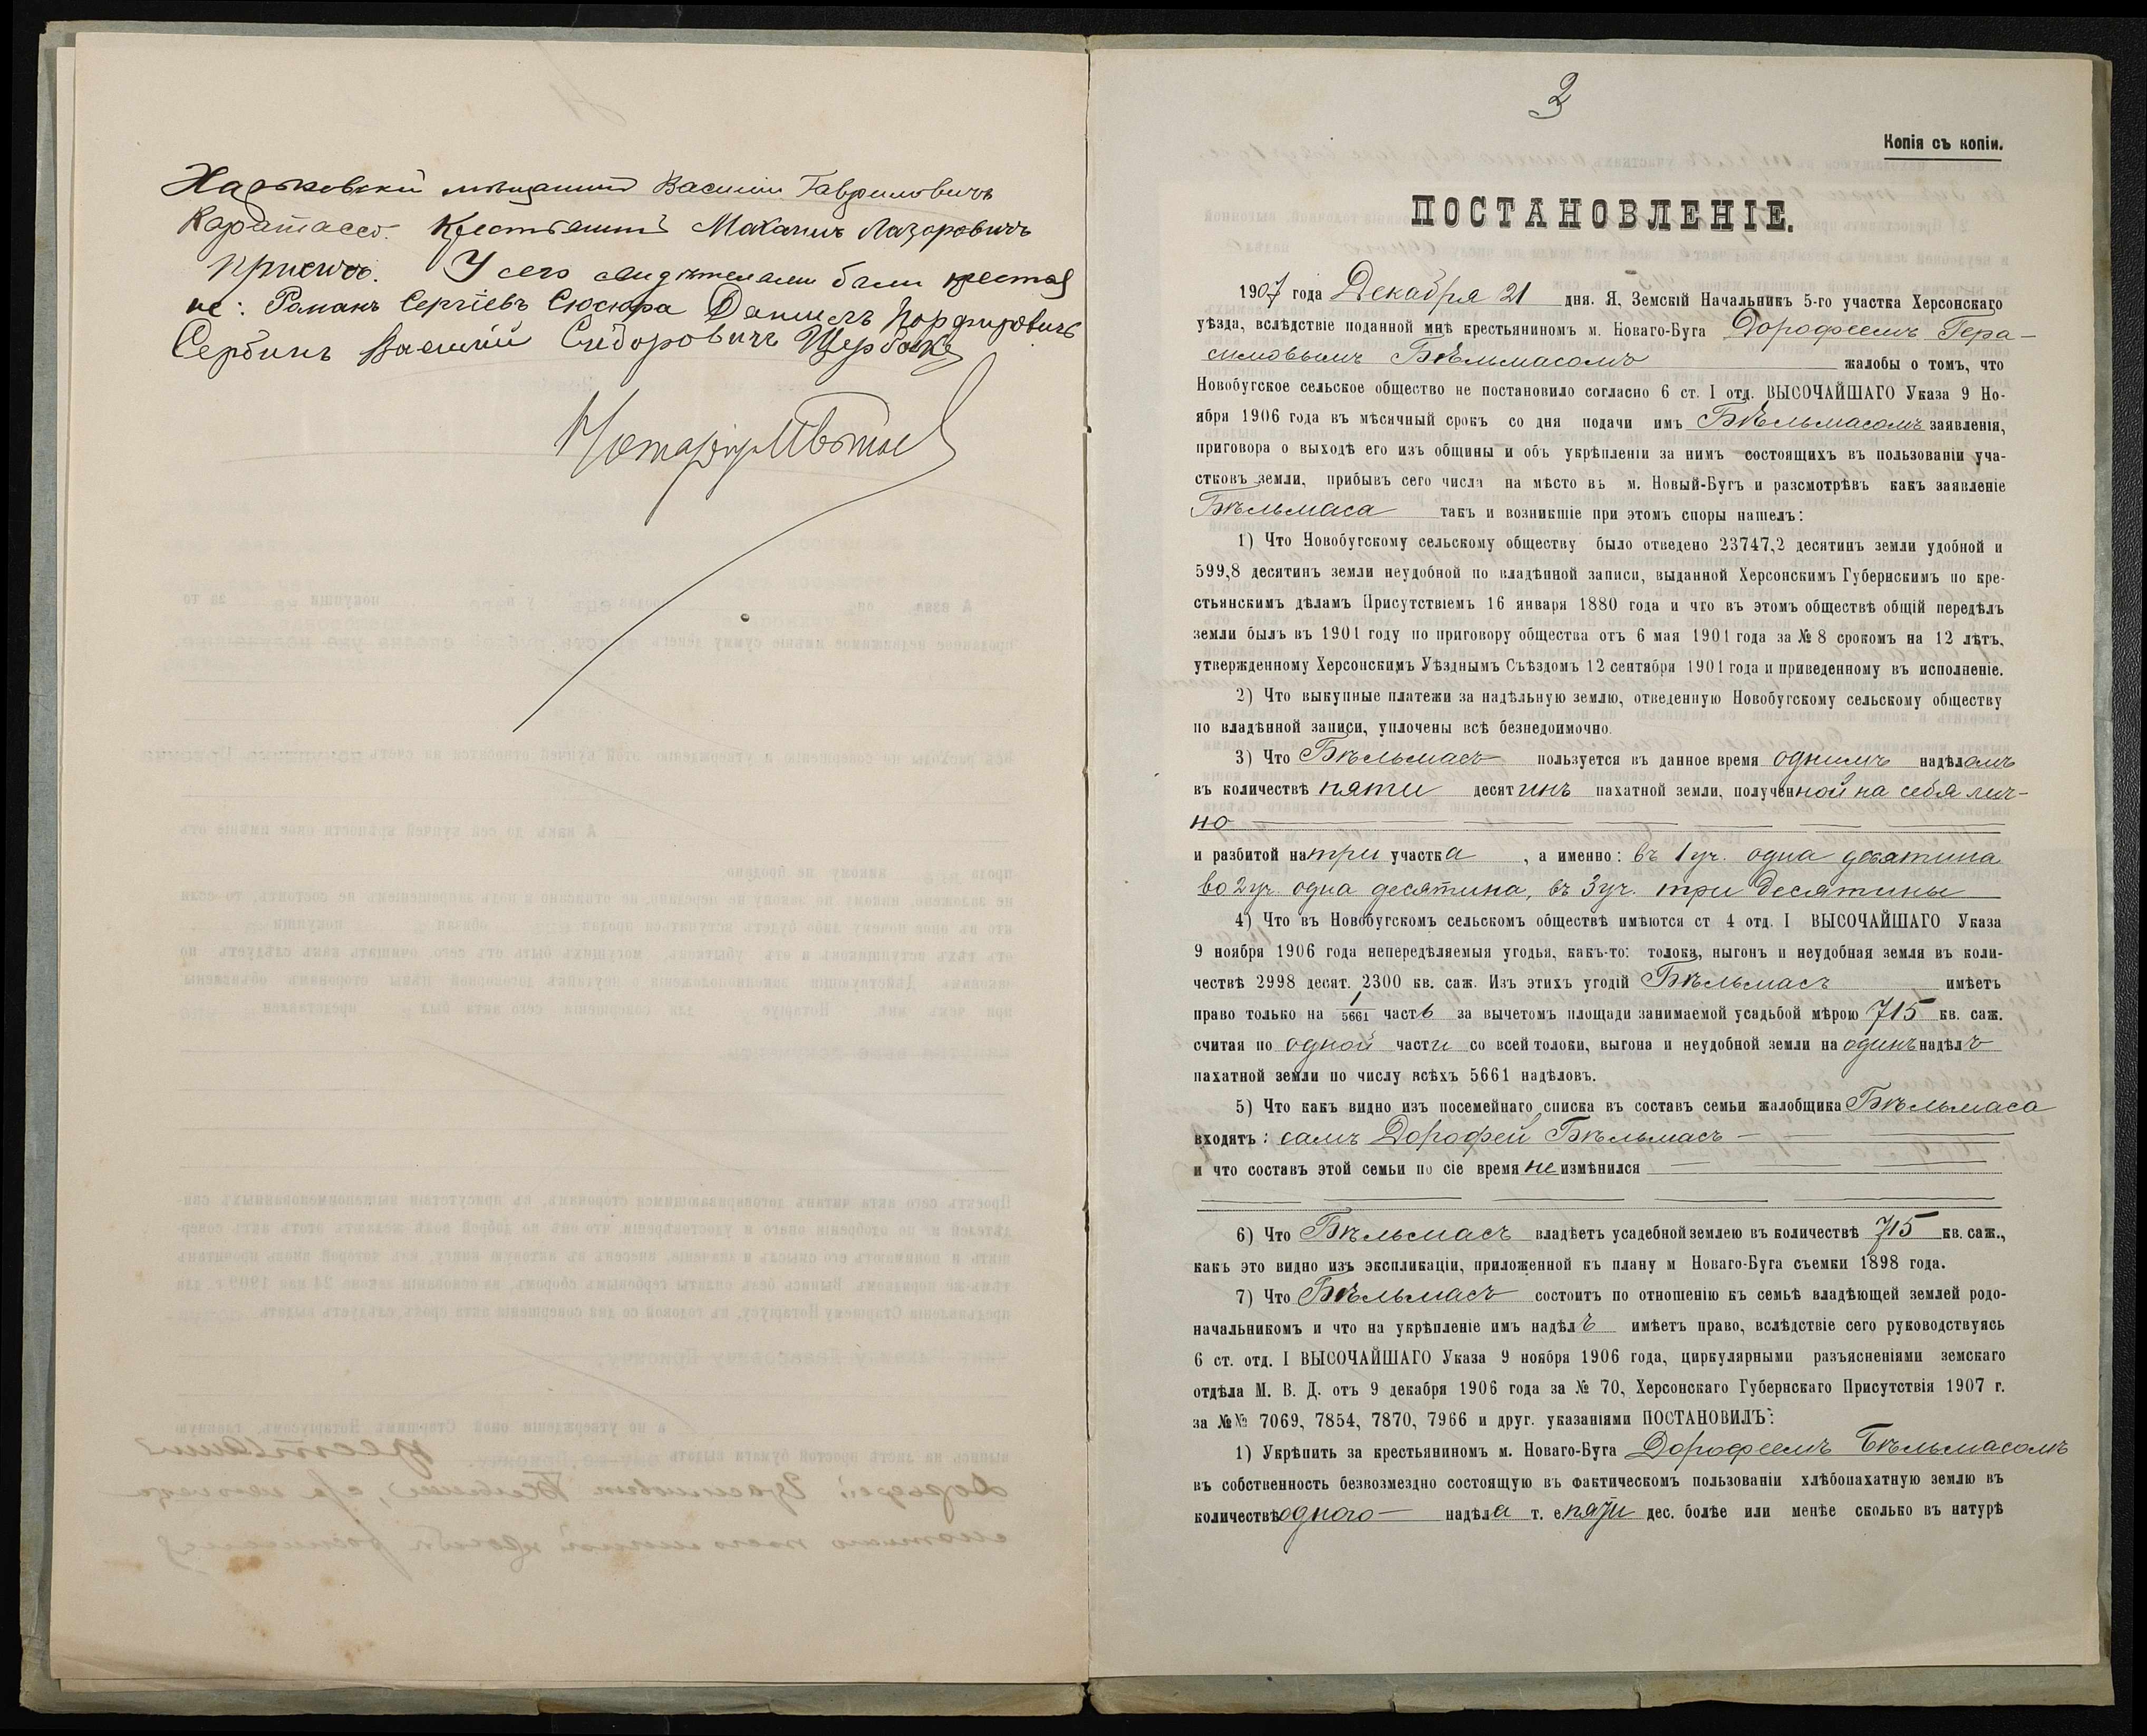 Харьковскій мѣщанинъ Василій Гавриловичъ
Каратассо. Крестьянинъ Макаръ Лазаровичъ
У сего свидѣтелями были крестья
не: Романъ Сергіевъ Сюсюра Даниилъ Порфировичъ
Сербинъ Василій Сидоровичъ Щербакъ
Нотаріусъ
3
Копія съ копіи.
ПОСТАНОВЛЕНІЕ.
1907 года Декабря 21 дня. Я, Земскій Начальникъ 5-го участка Херсонскаго
уѣзда, вслѣдствіе поданной мнѣ крестьяниномъ м. Новаго-Буга Дорофеемъ Гера-
симовымъ Бѣльмасомъ жалобы о томъ, что
Новобугское сельское общество не постановило согласно 6 ст. I отд. ВЫСОЧАЙШАГО Указа 9 Но-
ября 1906 года въ мѣсячный срокъ со дня подачи имъ Бѣльмасомъ заявленія,
приговора о выходѣ его изъ общины и объ укрѣпленіи за нимъ состоящихъ въ пользованіи уча-
стковъ земли, прибывъ сего числа на мѣсто въ м. Новый-Бугъ и разсмотрѣвъ какъ заявленіе
Бѣльмаса такъ и возникшіе при этомъ споры нашелъ:
1) Что Новобугскому сельскому обществу было отведено 23747,2 десятинъ земли удобной и
599,8 десятинъ земли неудобной по владѣнной записи, выданной Херсонскимъ Губернскимъ по кре-
стьянскимъ дѣламъ Присутствіемъ 16 января 1880 года и что въ этомъ обществѣ общій передѣлъ
земли былъ въ 1901 году по приговору общества отъ 6 мая 1901 года за № 8 срокомъ на 12 лѣтъ,
утвержденному Херсонскимъ Уѣзднымъ Съѣздомъ 12 сентября 1901 года и приведенному въ исполненіе.
2) Что выкупные платежи за надѣльную землю, отведенную Новобугскому сельскому обществу
по владѣнной записи, уплочены всѣ безнедоимочно.
3) Что Бѣльмасъ пользуется въ данное время однимъ надѣломъ
въ количествѣ пяти десятинъ пахатной земли, полученной на себя лич-
но
и разбитой на три участка, а именно: въ 1 уч. одна десятина
во 2 уч. одна десятина, въ 3 уч. три десятины
4) Что въ Новобугскомъ сельскомъ обществѣ имѣются ст 4 отд. I ВЫСОЧАЙШАГО Указа
9 ноября 1906 года непередѣляемыя угодья, какъ-то: толока, выгонъ и неудобная земля въ коли-
чествѣ 2998 десят. 2300 кв. саж. Изъ этихъ угодій Бѣльмасъ имѣетъ
право только на 1/5661 часть за вычетомъ площади занимаемой усадьбой мѣрою 715 кв. саж.
считая по одной части со всей толоки, выгона и неудобной земли на одинъ надѣлъ
пахатной земли по числу всѣхъ 5661 надѣловъ.
5) Что какъ видно изъ посемейнаго списка въ составъ семьи жалобщика Бѣльмаса
входятъ: самъ Дорофей Бѣльмасъ
и что составъ этой семьи по сіе время не измѣнился
6) Что Бѣльмасъ владѣетъ усадебной землею въ количествѣ 715 кв. саж.,
какъ это видно изъ экспликаціи, приложенной къ плану м Новаго-Буга съемки 1898 года.
7) Что Бѣльмасъ состоитъ по отношенію къ семьѣ владѣющей землей родо-
начальникомъ и что на укрѣпленіе имъ надѣлъ имѣетъ право, вслѣдствіе сего руководствуясь
6 ст. отд. I ВЫСОЧАЙШАГО Указа 9 ноября 1906 года, циркулярными разъясненіями земскаго
отдѣла М. В. Д. отъ 9 декабря 1906 года за № 70, Херсонскаго Губернскаго Присутствія 1907 г.
за №№ 7069, 7854, 7870, 7966 и друг. указаніями ПОСТАНОВИЛЪ:
1) Укрѣпить за крестьяниномъ м. Новаго-Буга Дорофеемъ Бѣльмасомъ
въ собственность безвозмездно состоящую въ фактическомъ пользованіи хлѣбопахатную землю въ
количествѣ одного надѣла т. е пяти дес. болѣе или менѣе сколько въ натурѣ